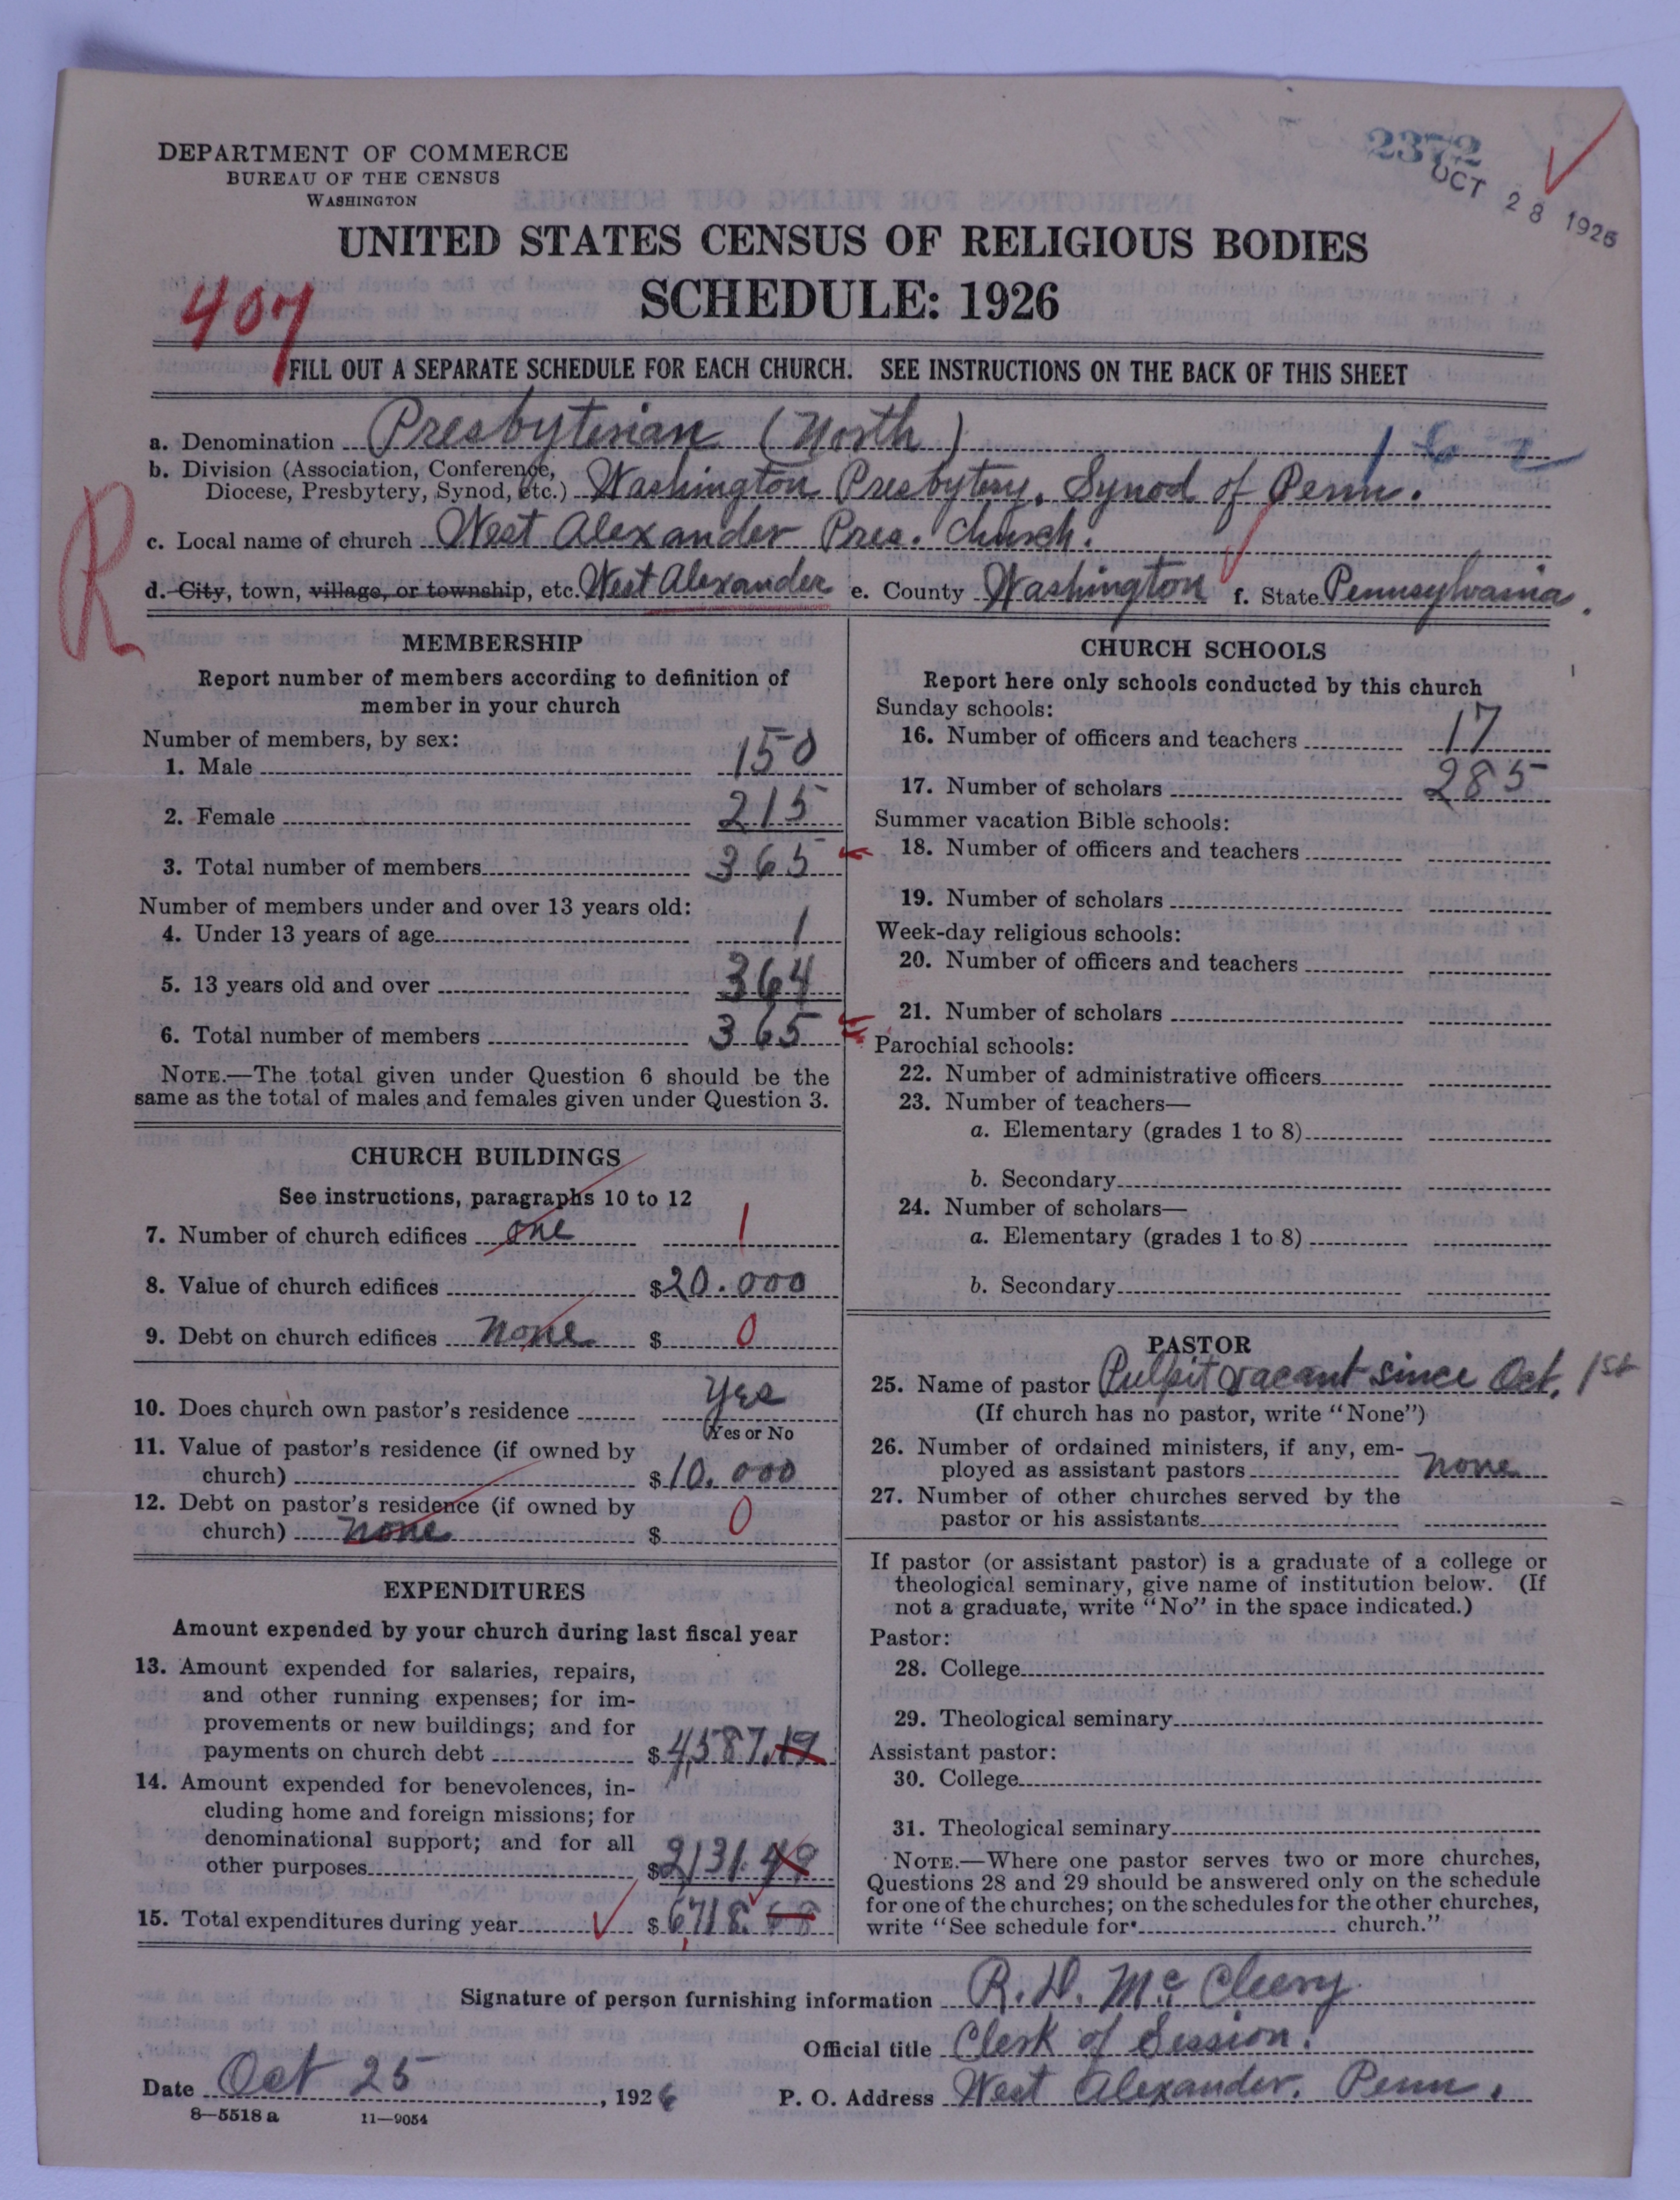 2372
OCT 28 1926
DEPARTMENT OF COMMERCE
BUREAU OF THE CENSUS
WASHINGTON
UNITED STATES CENSUS OF RELIGIOUS BODIES
SCHEDULE: 1926
407
FILL OUT A SEPARATE SCHEDULE FOR EACH CHURCH. SEE INSTRUCTIONS ON THE BACK OF THIS SHEET
a. Denomination Presbyterian (North) 162
b. Division (Association, Conference,
Diocese, Presbytery, Synod, etc.) Washington Presbytery. Synod of Penn.
R
c. Local name of church West Alexander Pres. Church.
d. City, town, village, or township, etc. West Alexander e. County Washington f. State Pennsylvania.
MEMBERSHIP
Report number of members according to definition of
member in your church
Number of members, by sex:
1. Male 150
2. Female 215
3. Total number of members 365
Number of members under and over 13 years old:
4. Under 13 years of age 1
5. 13 years old and over 364
6. Total number of members 365
NOTE.—The total given under Question 6 should be the
same as the total of males and females given under Question 3.
CHURCH BUILDINGS
See instructions, paragraphs 10 to 12
7. Number of church edifices one 1
8. Value of church edifices $20.000
9. Debt on church edifices none $ 0
10. Does church own pastor's residence yes
Yes or No
11. Value of pastor's residence (if owned by
church) $10.000
12. Debt on pastor's residence (if owned by
church) none $ 0
EXPENDITURES
Amount expended by your church during last fiscal year
13. Amount expended for salaries, repairs,
and other running expenses; for im-
provements or new buildings; and for
payments on church debt $4,587.19
14. Amount expended for benevolences, in-
cluding home and foreign missions; for
denominational support; and for all
other purposes $2131.49
15. Total expenditures during year $6,718.68
CHURCH SCHOOLS
Report here only schools conducted by this church
Sunday schools:
16. Number of officers and teachers 17
17. Number of scholars 285
Summer vacation Bible schools:
18. Number of officers and teachers
19. Number of scholars
Week-day religious schools:
20. Number of officers and teachers
21. Number of scholars
Parochial schools:
22. Number of administrative officers
23. Number of teachers—
a. Elementary (grades 1 to 8)
b. Secondary
24. Number of scholars—
a. Elementary (grades 1 to 8)
b. Secondary
PASTOR
25. Name of pastor Pulpit vacant since Oct. 1st
(If church has no pastor, write "None")
26. Number of ordained ministers, if any, em-
ployed as assistant pastors none
27. Number of other churches served by the
pastor or his assistants
If pastor (or assistant pastor) is a graduate of a college or
theological seminary, give name of institution below. (If
not a graduate, write "No" in the space indicated.)
Pastor:
28. College
29. Theological seminary
Assistant pastor:
30. College
31. Theological seminary
NOTE.—Where one pastor serves two or more churches,
Questions 28 and 29 should be answered only on the schedule
for one of the churches; on the schedules for the other churches,
write "See schedule for church."
Signature of person furnishing information R. D. McCleery
Official title Clerk of Session.
Date Oct 25, 1926 P. O. Address West Alexander. Penn.
8—5518 a 11—9054